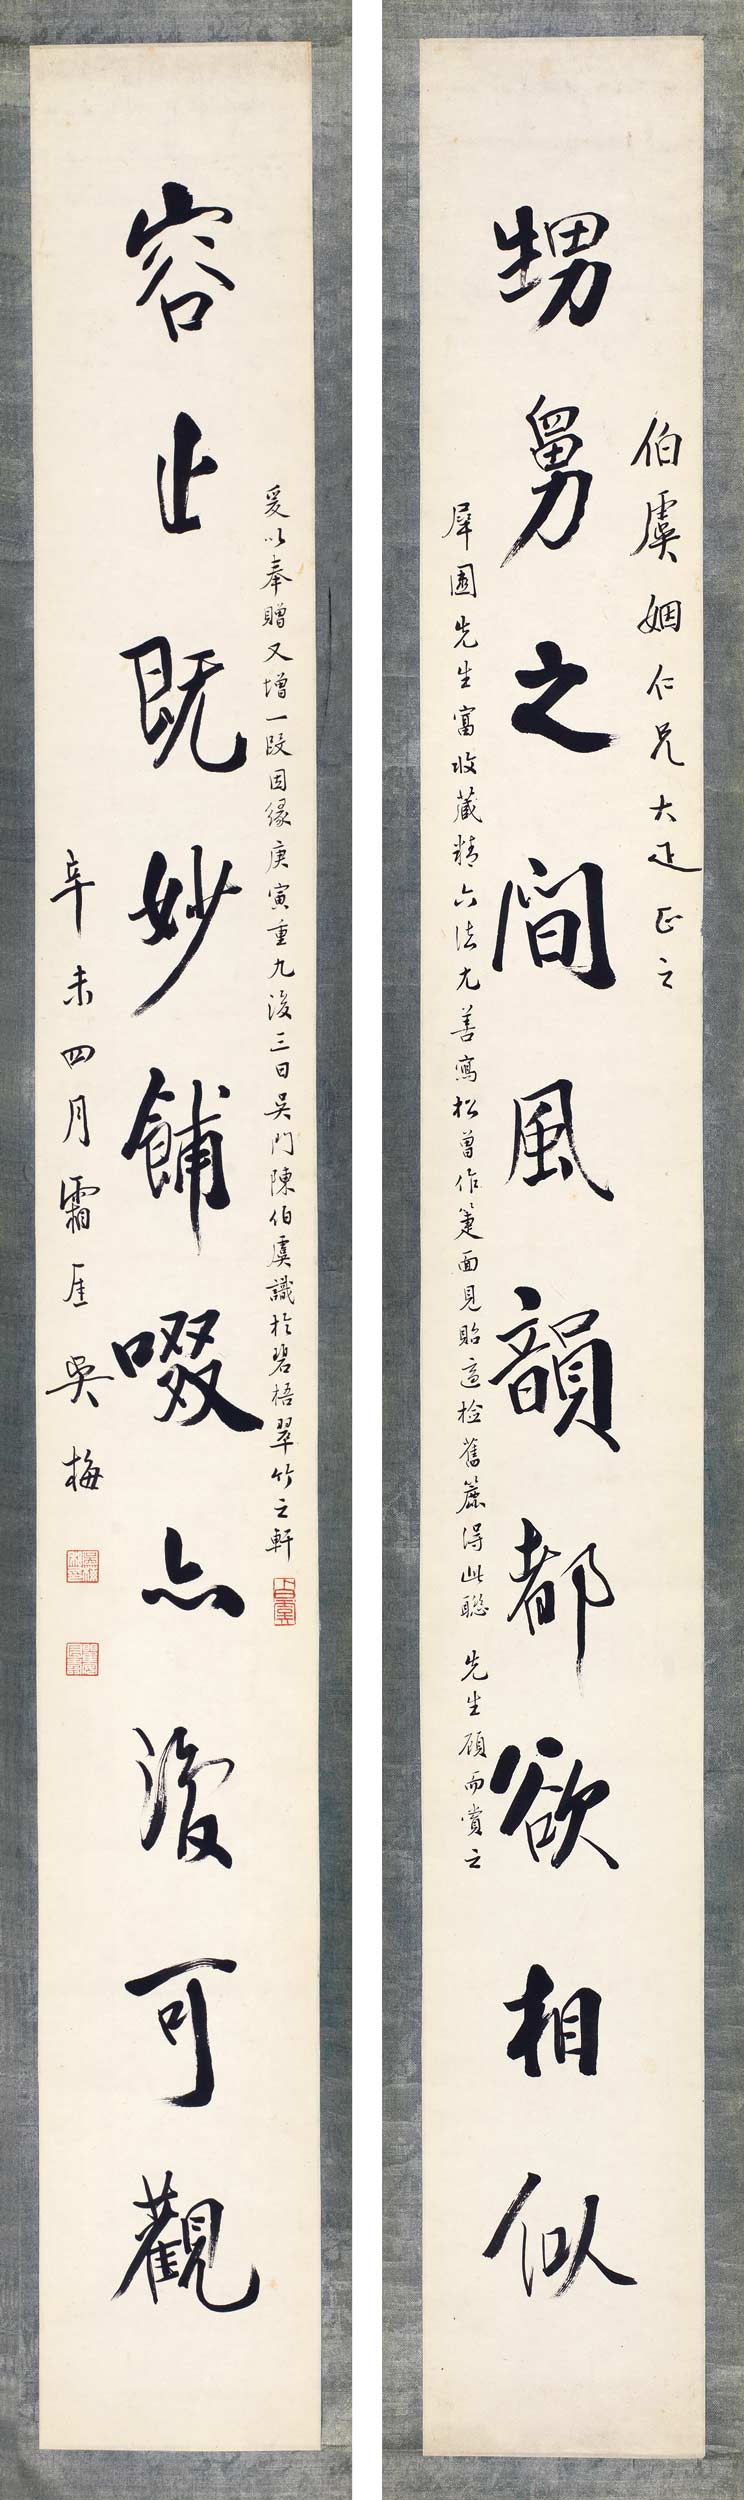 伯虞姻仁兄大疋正之
甥舅之間風韻都欲相似
犀園先生富收藏精六法尤善寫松曾作箑面見貽適檢舊簏得此聯 先生顧而賞之
爰以奉贈又增一段因緣庚寅重九後三日吳門陳伯虞識於碧梧翠竹之軒
容止既妙餔啜亦復可觀
辛未四月霜厓吳梅